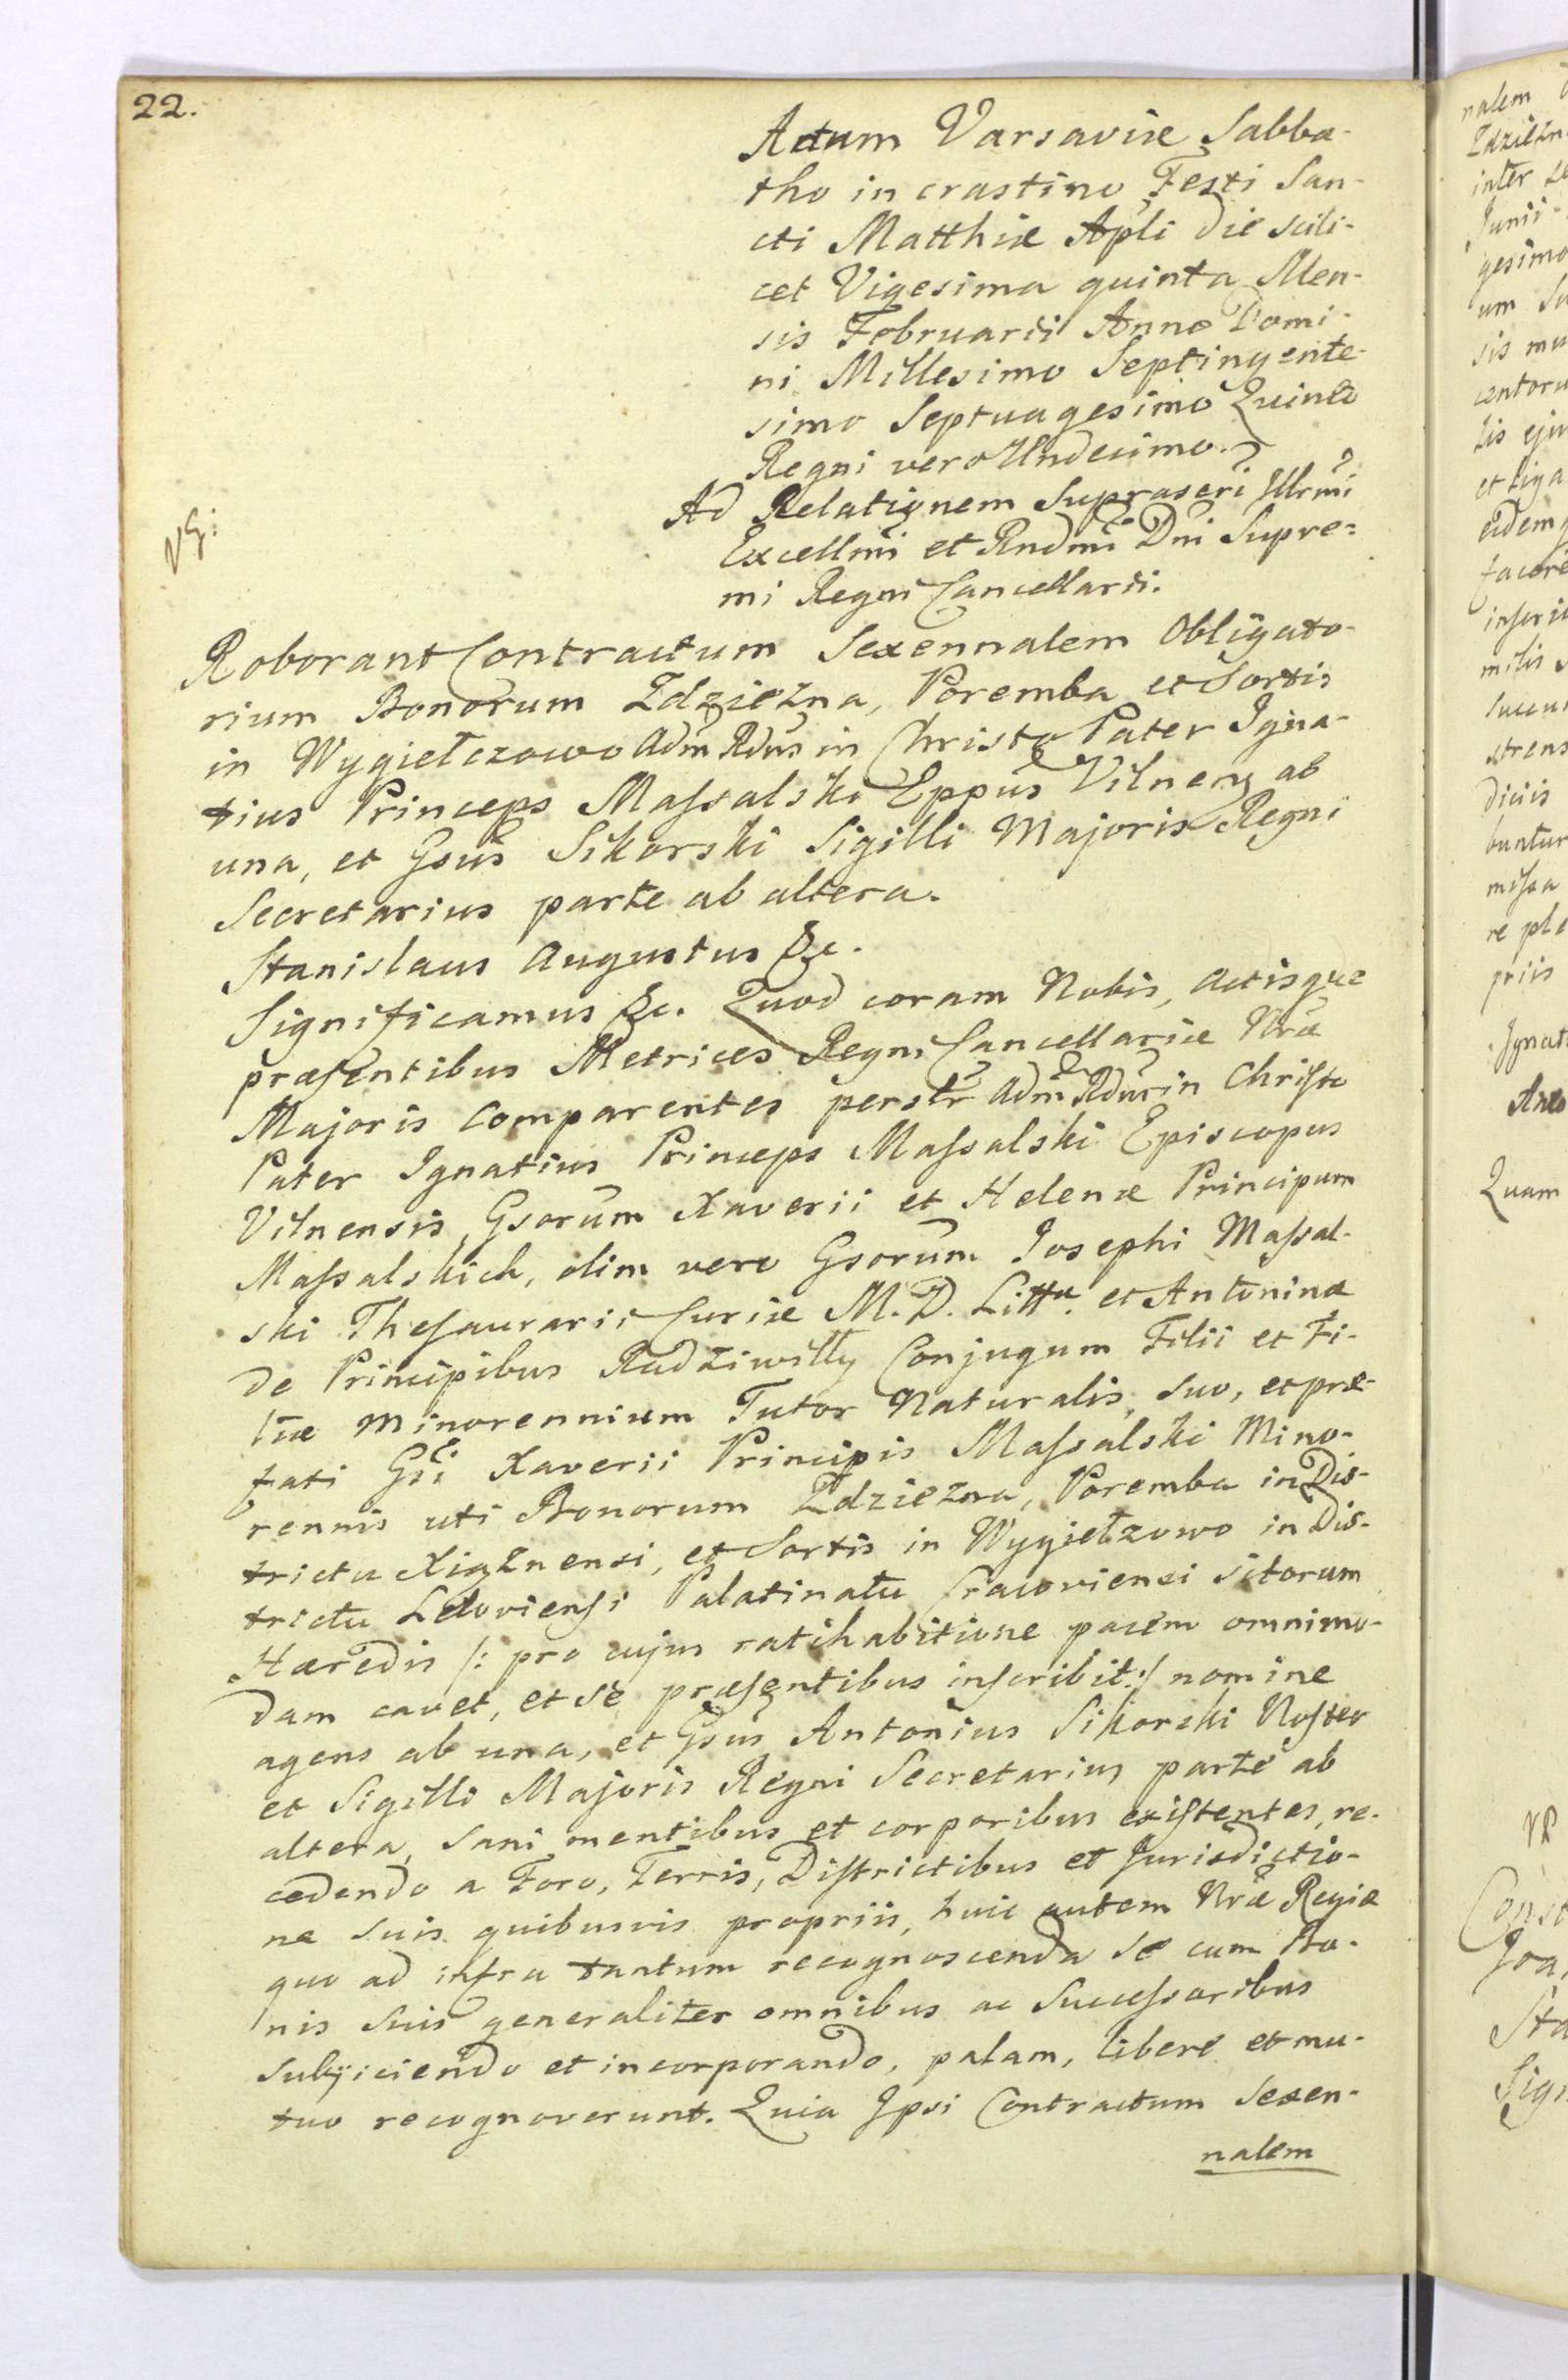 22.
Actum Varsaviæ Sabba-
tho in crastino Festi San-
cti Matthiæ Apli die scili-
cet Vigesima quinta Men-
sis Februarii Anno Domi-
ni Millesimo Septingente-
simo Septuagesimo Quinto
Regni vero Undecimo.
Ad Relationem Suprascri Illrmi
Excellmi et Rndmi Dni Supre=
mi Regni Cancellarii.
Roborant Contractum Sexennalem Obligato-
rium Bonorum Zdziezna, Poremba et Sortis
in Wygiełczowo Adm Rdus in Christo Pater Igna-
tius Princeps Maſsalski Eppus Vilnens ab
una, et Gsus Sikorski Sigilli Majoris Regni
Secretarius parte ab altera.
Stanislaus Augustus &c.
Significamus &c. Quod coram Nobis, Actisque
præſentibus Metrices Regni Cancellariæ Nræ
Majoris Comparentes personlr Adm Rdus in Chriſto
Pater Ignatius Princeps Maſsalski Episcopus
Vilnensis, Gsorum Xaverii et Helenæ Principum
Maſsalskich, olim vero Gsorum Josephi Maſsal-
ski Theſaurarii Curiæ M. D. Litt. et Antoninæ
de Principibus Radziwiłły Conjugum Filii et Fi-
liæ Minorennium Tutor Naturalis, suo, et præ-
fati Gsi Xaverii Principis Maſsalski Mino-
rennis uti Bonorum Zdziezna, Poremba in Dis-
trictu Xiąznensi, et Sortis in Wygiełzowo in Dis-
trictu Leloviensi Palatinatu Cracoviensi sitorum
Hæredis /: pro cujus ratihabitione pacem omnimo-
dam cavet, et se præſentibus inſcribit :/ nomine
agens ab una, et Gsus Antonius Sikorski Noſter
et Sigilli Majoris Regni Secretarius parte ab
altera, sani mentibus et corporibus exiſtentes, re-
cedendo a Foro, Terris, Diſtrictibus et Jurisdictio-
ne suis quibusvis propriis, huic autem Nræ Regiæ
quo ad infra tantum recognoscenda se cum Bo-
nis suis generaliter omnibus ac Succeſsoribus
subijciendo et incorporando, palam, libere et mu-
tuo recognoverunt. Quia Ipsi Contractum Sexen-
nalem
nalem
Zdziezn
inter
Junii
gesimo
um
sis mu
tis eju
et liga
eidem
facore
inſcri
diciis
buntur
miſsa
re ple
priis
Ignati
Quam
Const
Joa
Sta
Sign